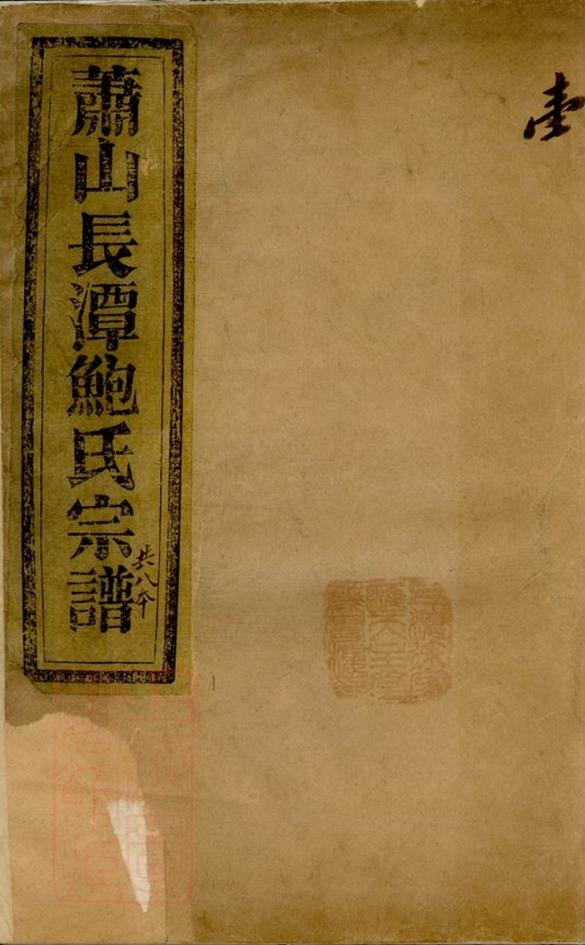 壹
蕭山長潭鮑氏宗譜
共八本